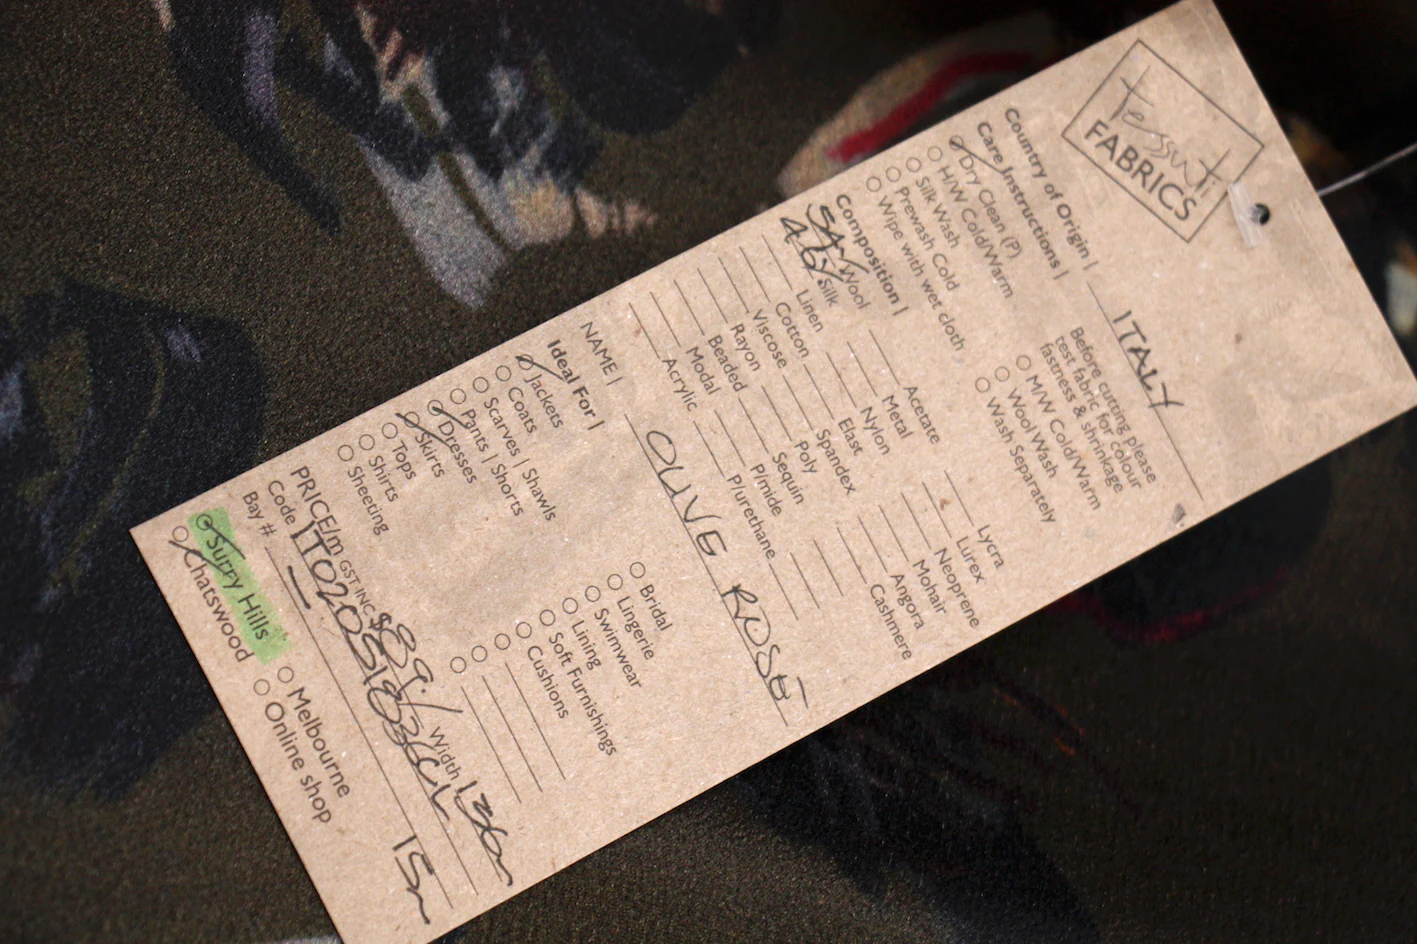 tessuti
FABRICS
Country of Origin | ITALY
Care Instructions |
Dry Clean (P)
H/W Cold/Warm
Silk Wash
Prewash Cold
Wipe with wet cloth
Before cutting please
test fabric for colour
fastness & shrinkage
M/W Cold/Warm
Wool Wash
Wash Separately
Composition |
54% Wool
46% Silk
Linen
Cotton
Viscose
Rayon
Beaded
Modal
Acrylic
Acetate
Metal
Nylon
Elast
Spandex
Poly
Sequin
P/mide
P/urethane
Lycra
Lurex
Neoprene
Mohair
Angora
Cashmere
NAME | OLIVE ROSE
Ideal For |
Jackets
Coats
Scarves | Shawls
Pants | Shorts
Dresses
Skirts
Tops
Shirts
Sheeting
Bridal
Lingerie
Swimwear
Lining
Soft Furnishings
Cushions
PRICE/m GST INC $89./ Width 136m
Code
Bay # 15m
Surry Hills
Chatswood
Melbourne
Online shop